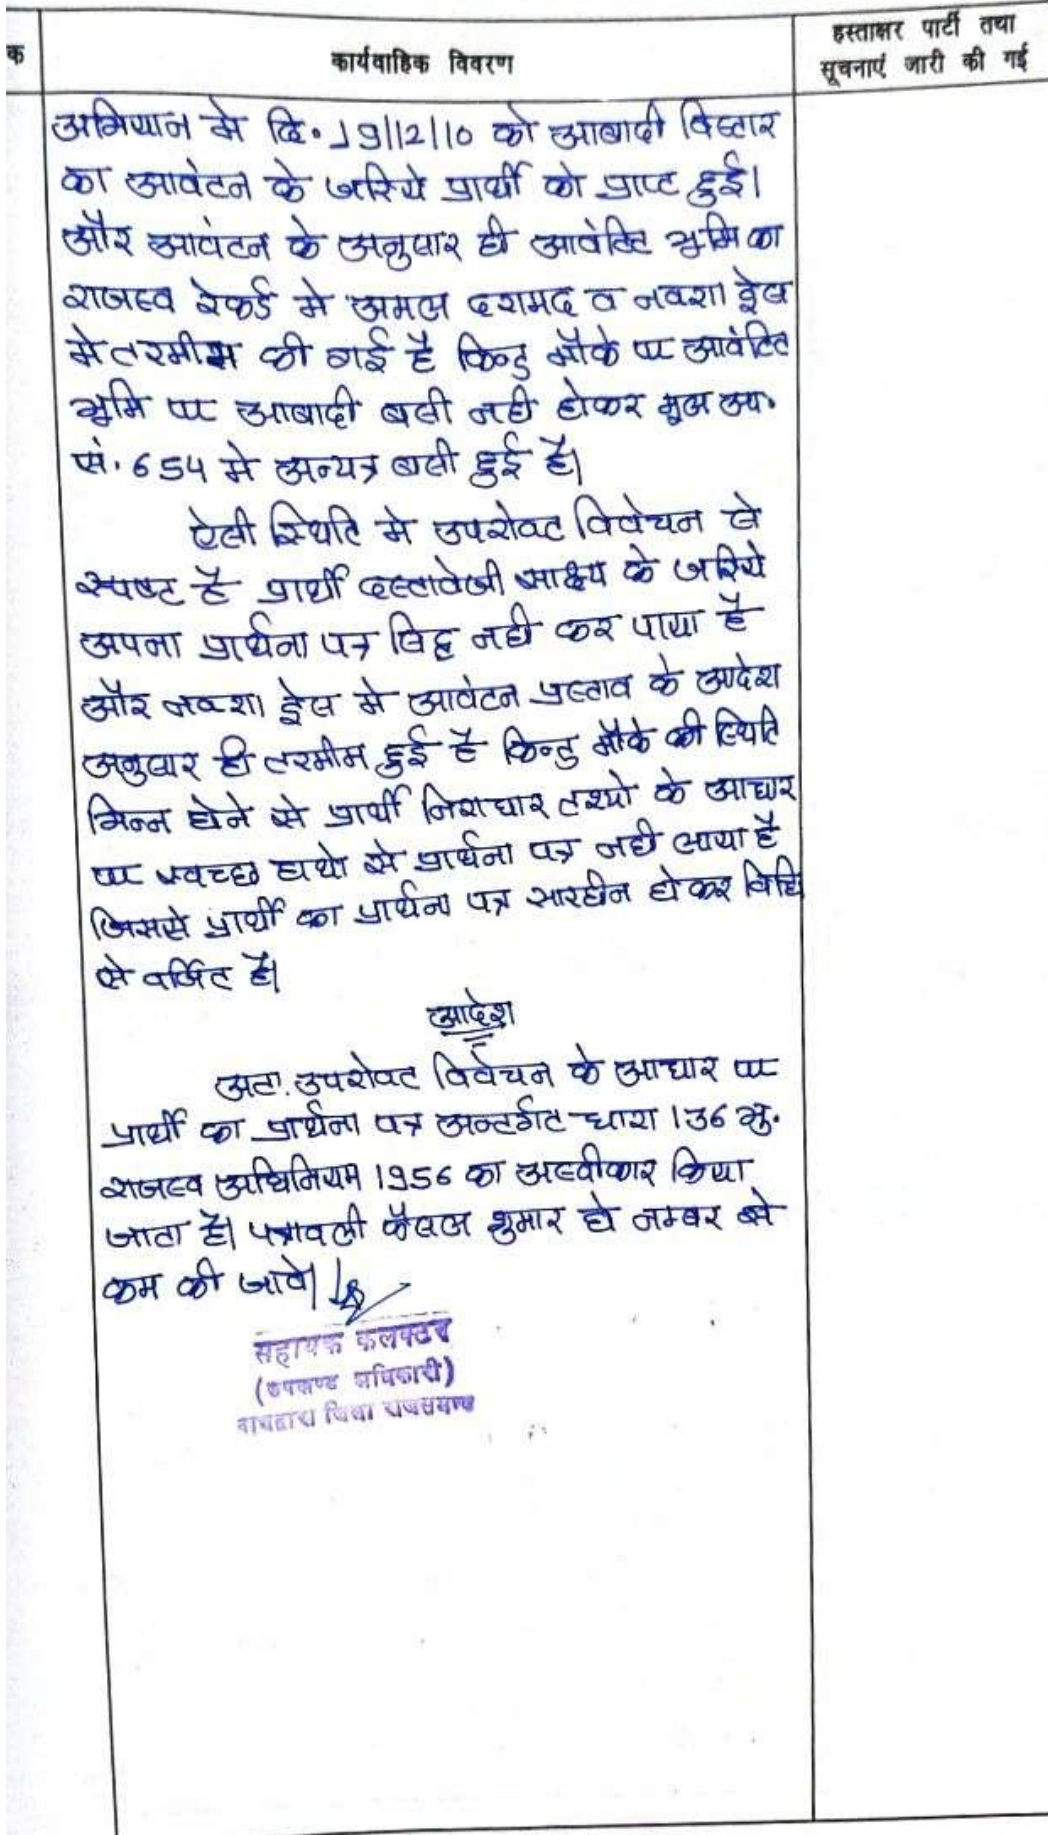 क
कार्यवाहिक विवरण
हस्ताक्षर पार्टी तथा
सूचनाएं जारी की गई
अभियान मे दि. 19/12/10 को आबादी विस्तार
का आवंटन के जरिये प्रार्थी को प्राप्त हुई।
और आवंटन के अनुसार ही आवंटित भूमि का
राजस्व रेकर्ड मे अमल दरामद व नक्शा ट्रेस
मे तरमीम की गई है किन्तु मौके पर आवंटित
भूमि पर आबादी बसी नही होकर मूल आ.
सं. 654 मे अन्यत्र बसी हुई है।
ऐसी स्थिति मे उपरोक्त विवेचन से
स्पष्ट है प्रार्थी दस्तावेजी साक्ष्य के जरिये
अपना प्रार्थना पत्र सिद्ध नही कर पाया है
और नक्शा ट्रेस मे आवंटन प्रस्ताव के आदेश
अनुसार ही तरमीम हुई है किन्तु मौके की स्थिति
भिन्न होने से प्रार्थी निराधार तथ्यो के आधार
पर स्वच्छ हाथो से प्रार्थना पत्र नही लाया है
जिससे प्रार्थी का प्रार्थना पत्र सारहीन होकर विधि
से वर्जित है।
आदेश
अतः उपरोक्त विवेचन के आधार पर
प्रार्थी का प्रार्थना पत्र अन्तर्गत धारा 136 भू.
राजस्व अधिनियम 1956 का अस्वीकार किया
जाता है। पत्रावली फैसल शुमार हो नम्बर से
कम की जावे।
सहायक कलक्टर
(उपखण्ड अधिकारी)
नाथद्वारा जिला राजसमन्द